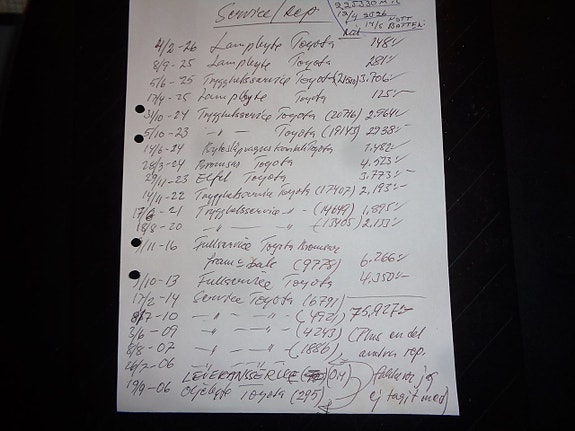 Service/rep.
225330 mil
19/4 2026
14/5 NYTT BATTERI
4/2-26 Lampbyte Toyota 148:-
8/9-25 Lampbyte Toyota 281:-
5/6-25 Trygghetsservice Toyota (21535) 3.706:-
17/4-25 Lampbyte Toyota 125:-
3/10-24 Trygghetsservice Toyota (20716) 2.964:-
5/10-23 -"- Toyota (19143) 2938:-
14/6-24 Toyota 1.482:-
28/3-24 Bromsar Toyota 4.523:-
29/11-23 Elfel Toyota 3.773:-
14/11-22 Trygghetsservice Toyota (17407) 2.193:-
17/6-21 Trygghetsservice -"- (14649) 1.895:-
18/8-20 -"- -"- (13405) 2.133:-
/11-16 Fullservice Toyota Bromsar
fram o bak (9778) 6.266:-
/10-13 Fullservice Toyota 4.350:-
17/2-14 Service Toyota (6791)
-10 -"- -"- (4921) 75.927:-
3/6-09 -"- -"- (4243) (Plus en del
8/8-07 -"- -"- (1886) andra rep.
-06 LEVERANSSERVICE (OH) jag
19/9-06 Oljebyte Toyota (295) ej tagit med)